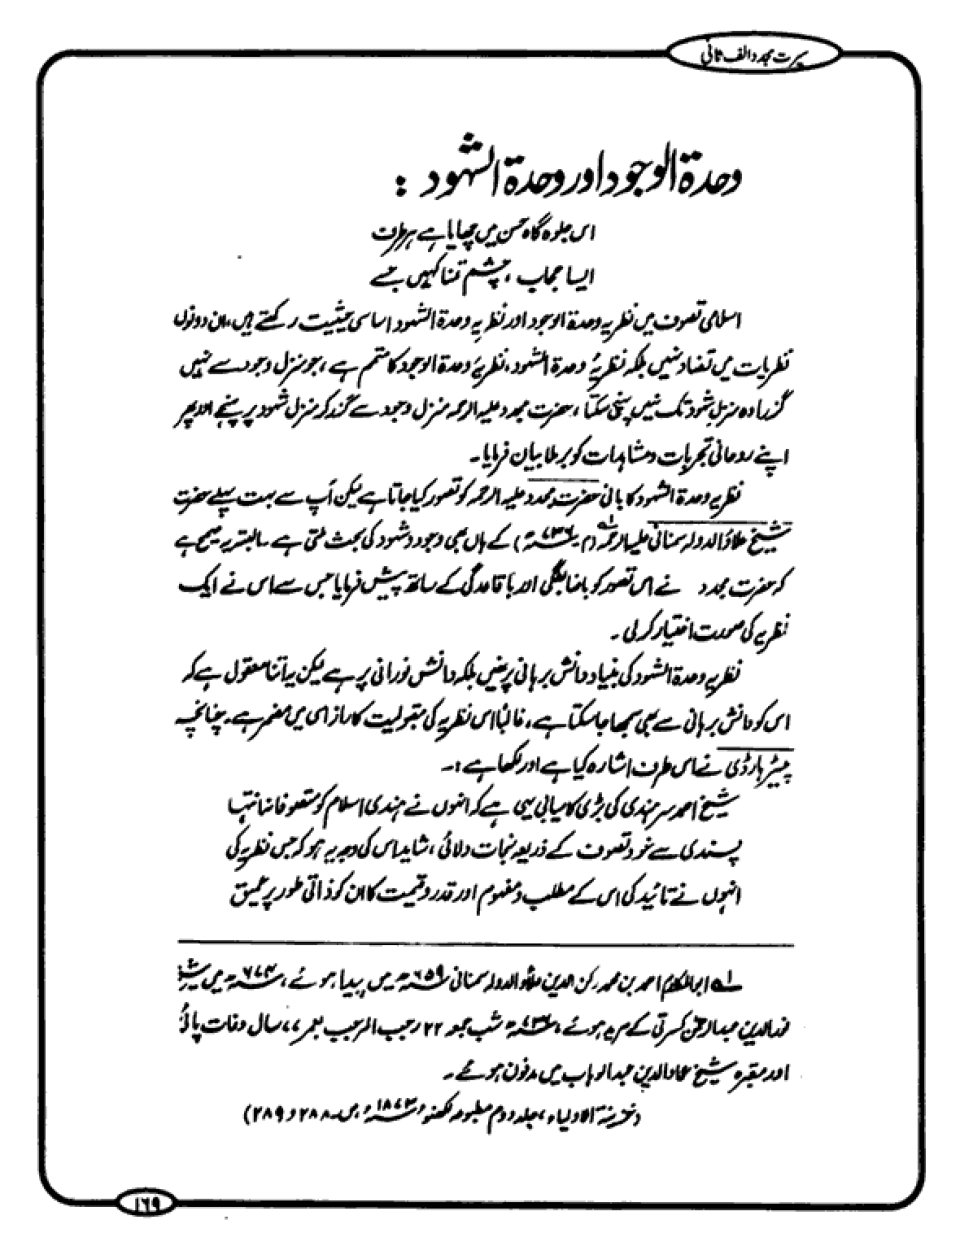 سیرت مجدد الف ثانی
وحدۃ الوجود اور وحدۃ الشہود :
اس جلوہ گاہ حسن میں چھایا ہے ہر طرف
ایسا حجاب ، چشم تمنا کہیں جسے
اسلامی تصوف میں نظریہ وحدۃ الوجود اور نظریہ وحدۃ الشہود اساسی حیثیت رکھتے ہیں، ان دونوں
نظریات میں تضاد نہیں بلکہ نظریۂ وحدۃ الشہود، نظریۂ وحدۃ الوجود کا متمم ہے ، جو منزل وجود سے نہیں
گزرا وہ منزل شہود تک نہیں پہنچ سکتا ، حضرت مجدد علیہ الرحمہ منزل وجود سے گذر کر منزل شہود پر پہنچے اور پھر
اپنے روحانی تجربات و مشاہدات کو برملا بیان فرمایا ۔
نظریہ وحدۃ الشہود کا بانی حضرت مجدد علیہ الرحمہ کو تصور کیا جاتا ہے لیکن آپ سے بہت پہلے حضرت
شیخ علاؤ الدولہ سمنانی علیہ الرحمہ ۱؎ (م ۔ ۷۳۶ھ) کے ہاں بھی وجود و شہود کی بحث ملتی ہے ۔ البتہ یہ صحیح ہے
کہ حضرت مجدد نے اس تصور کو باضابطگی اور باقاعدگی کے ساتھ پیش فرمایا جس سے اس نے ایک
نظریے کی صورت اختیار کر لی ۔
نظریہ وحدۃ الشہود کی بنیاد دانش برہانی پر نہیں بلکہ دانش نورانی پر ہے لیکن یہ اتنا معقول ہے کہ
اس کو دانش برہانی سے بھی سمجھا جا سکتا ہے ، غالباً اس نظریہ کی مقبولیت کا راز اسی میں مضمر ہے ۔ چنانچہ
پیٹر ہارڈی نے اس طرف اشارہ کیا ہے اور لکھا ہے :۔
شیخ احمد سرہندی کی بڑی کامیابی یہی ہے کہ انہوں نے ہندی اسلام کو متصوفانہ انتہا
پسندی سے خود تصوف کے ذریعہ نجات دلائی ، شاید اس کی وجہ یہ ہو کہ جس نظریہ کی
انہوں نے تائید کی اس کے مطلب و مفہوم اور قدر و قیمت کا ان کو ذاتی طور پر عمیق
۱؎ ابوالمکارم احمد بن محمد رکن الدین علاؤ الدولہ سمنانی ۶۵۹ھ میں پیدا ہوئے ، ۶۷۴ھ میں شیخ
نور الدین عبدالرحمٰن کسرتی کے مرید ہوئے ، ۷۳۶ھ شب جمعہ ۲۲ رجب المرجب بعمر ۷۷ سال وفات پائی
اور مقبرہ شیخ عماد الدین عبدالوہاب میں مدفون ہوئے ۔
(خزینۃ الاولیاء ، جلد دوم مطبوعہ لکھنو ۱۸۷۳ء ، ص ۲۸۸ و ۲۸۹)
۱۶۹